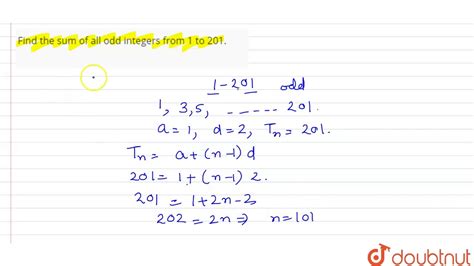 Find the sum of all odd integers from 1 to 201.
1 - 201 odd
1, 3, 5, ------ 201.
a = 1, d = 2, Tn = 201.
Tn = a + (n-1) d
201 = 1 + (n-1) 2.
201 = 1 + 2n - 2
202 = 2n ⇒ n = 101
doubtnut